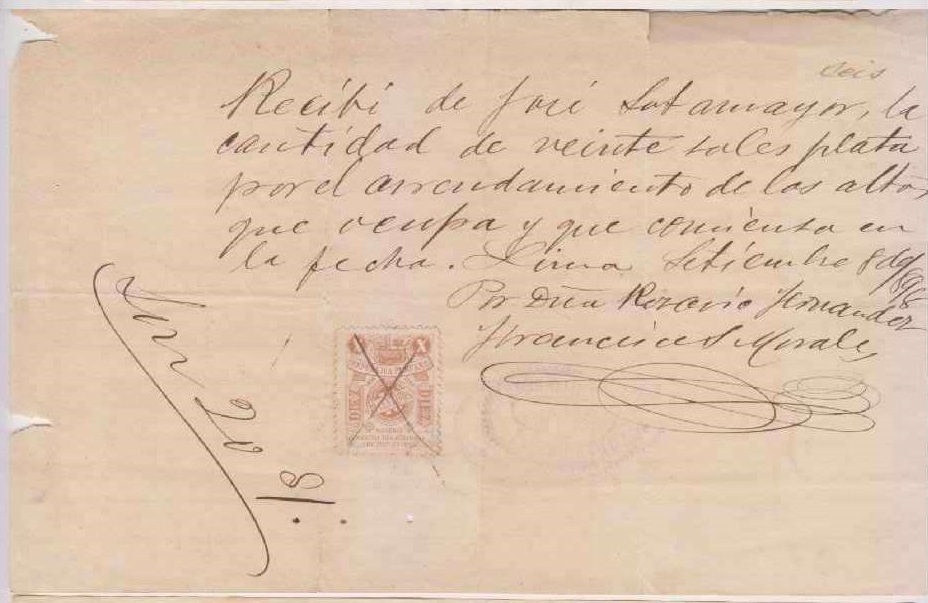 seis
Recibí de José Sotamayor, la
cantidad de veinte soles plata
por el arrendamiento de los altos
que ocupa y que comiensa en
la fecha. Lima Setiembre 8 de
Por Dña Rosario Hernandez
Francisco S Morales
Son 20 S/.
X X
REPUBLICA PERUANA
DIEZ DIEZ